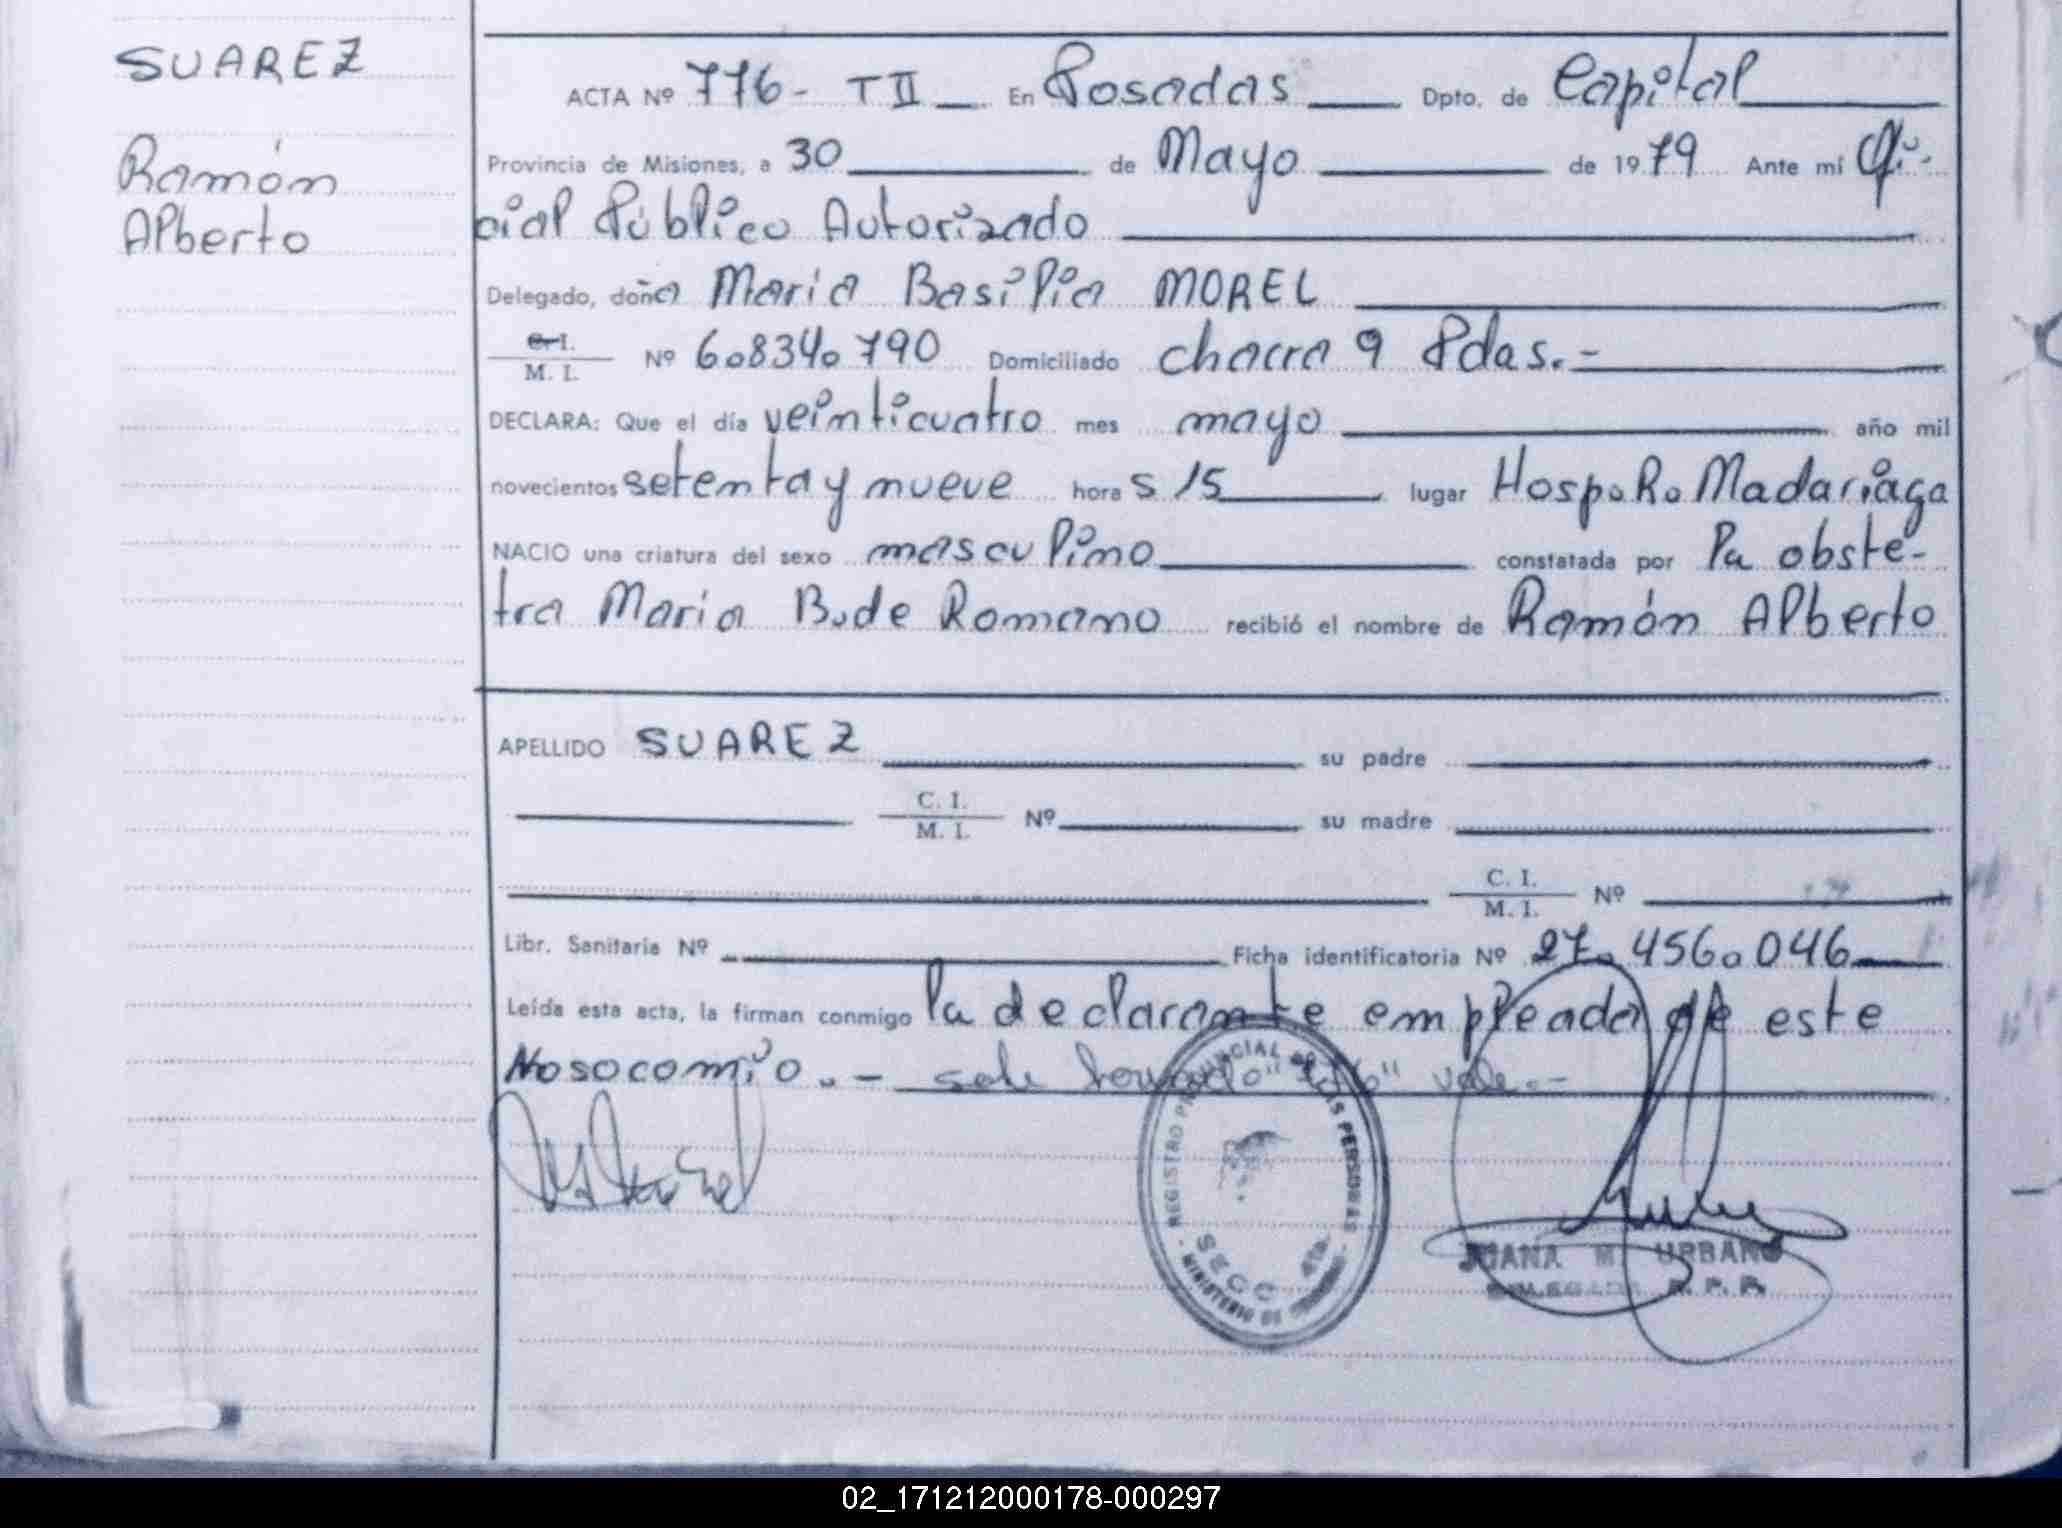 SUAREZ
Ramón
Alberto
ACTA Nº 776- T II En Posadas Dpto. de Capital
Provincia de Misiones, a 30 de Mayo de 1979 Ante mí Ofi-
cial Público Autorizado
Delegado, doña Maria Basilia MOREL
C. I. / M. I. Nº 6.834.790 Domiciliado chacra 9 Pdas.-
DECLARA: Que el día veinticuatro mes mayo año mil
novecientos setenta y nueve hora s 15 lugar Hosp. R. Madariaga
NACIO una criatura del sexo masculino constatada por la obste-
tra Maria B. de Romano recibió el nombre de Ramón Alberto
APELLIDO SUAREZ su padre
C. I. / M. I. Nº su madre
C. I. / M. I. Nº
Libr. Sanitaria Nº Ficha identificatoria Nº 27.456.046
Leída esta acta, la firman conmigo la declarante empleada de este
Nosocomio.- vale.-
REGISTRO PROVINCIAL DE LAS PERSONAS
SECC 4ta.
MINISTERIO DE
JUANA M. URBANO
DELEGADA R. P. P.
02_171212000178-000297